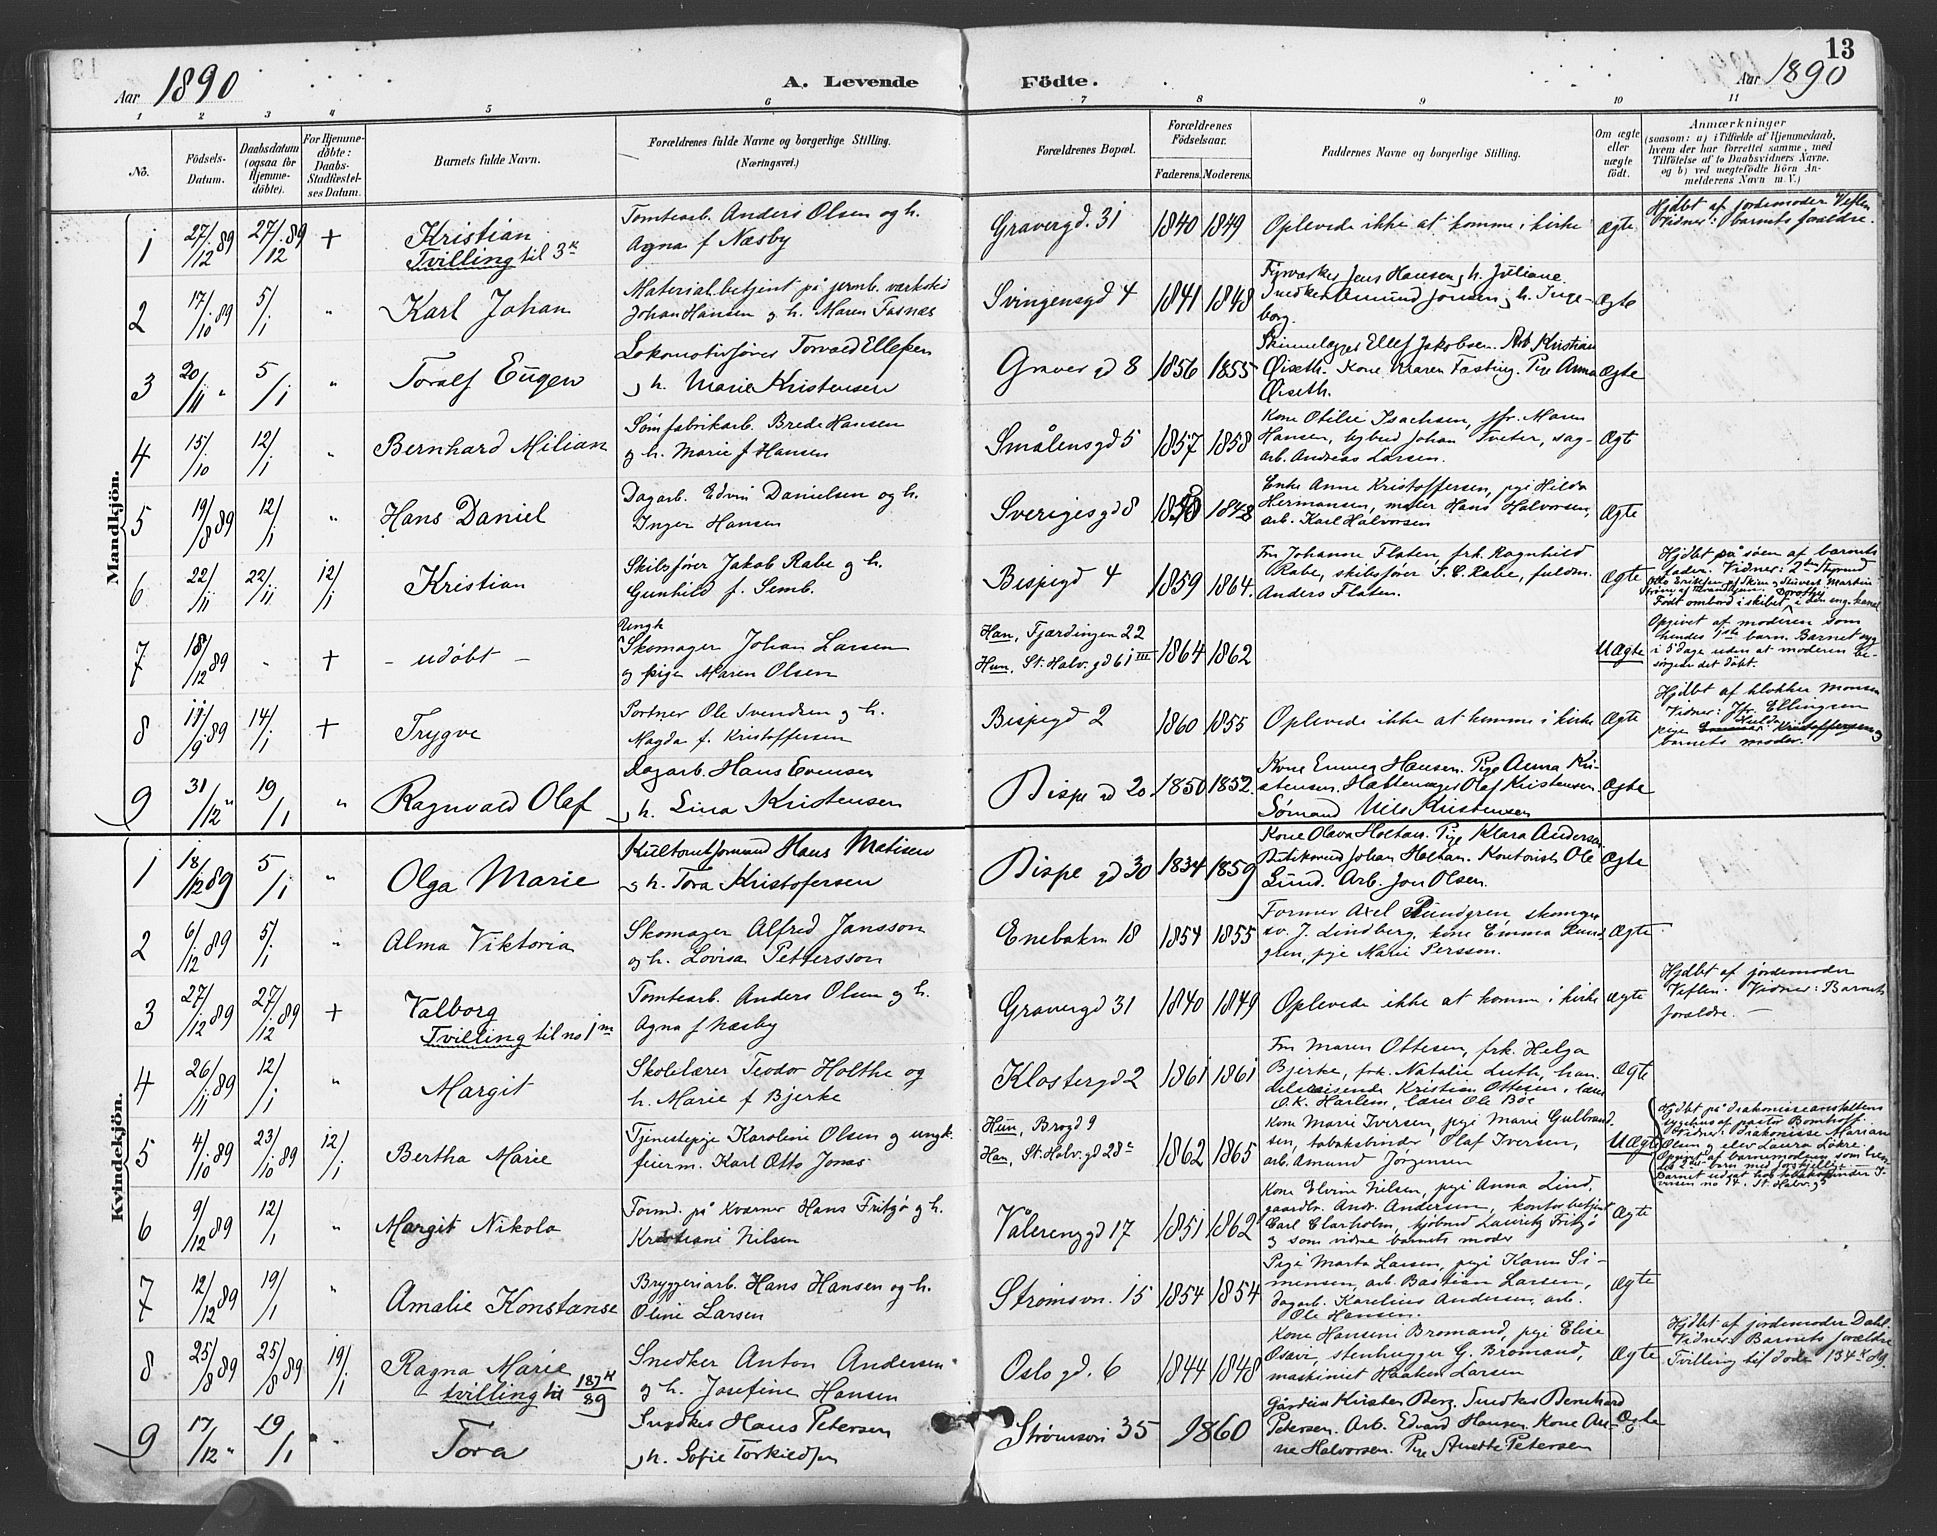 13
Aar 1890 A. Levende Födte. Aar 1890
1 2 3 4 5 6 7 8 9 10 11
No.
Födsels-Datum.
Daabsdatum (ogsaa for Hjemmedöbte).
For Hjemmedöbte: Daabs-Stadfæstelses Datum.
Barnets fulde Navn.
Forældrenes fulde Navne og borgerlige Stilling. (Næringsvei.)
Forældrenes Bopæl.
Forældrenes Födselsaar.
Faderens. Moderens.
Faddernes Navne og borgerlige Stilling.
Om ægte eller uægte födt.
Anmærkninger
(saasom: a) i Tilfælde af Hjemmedaab, hvem der har forrettet samme, med Tilföielse af to Daabsvidners Navne. og b) ved uægtefödte Börn Anmelderens Navn m. V.)
Mandkjön.
1 27/12 89 27/12 89 + Kristian
Tvilling til 3 k
Tomtearb. Anders Olsen og h.
Agna f Næsby
Gravergd. 31 1840 1849 Oplevede ikke at komme i kirke ægte
Hjdbt af jordemoder Veflen
Vidner: barnets forældre.
2 17/10 89 5/1 " Karl Johan
Materialbetjent på jernb. værksted
Johan Hansen og h. Maren Fasnæs
Svingensgd 4 1841 1848
Fyrværker Jens Hansen og h. Juliane
Snedker Amund Jonsen og h. Inge-
borg.
Ægte
3 20/11 " 5/1 " Toralf Eugen
Lokomotivfører Torvald Ellefsen
og h. Marie Kristensen
Graver gd 8 1856 1855
Skindlægger Ellef Jakobsen. Arb Kristian
Øiseth. Kone Karen Fasting. Pige Anna
Øiseth.
Ægte
4 15/10 12/1 " Bernhard Milian
Sømfabrikarb. Brede Hansen
og h. Marie f Hansen
Smålensgd 5 1857 1858
Kone Otilie Isachsen, jfr. Maren
Hansen, bybud Johan Tveter, sag-
arb. Andreas Larsen.
Ægt
5 19/8 89 12/1 " Hans Daniel
Dagarb. Edvin Danielsen og h.
Inger Hansen
Sverigesgd 8 1848
Enke Anne Kristoffersen, pige Hilda
Hermansen, maler Hans Halvorsen,
arb. Karl Halvorsen
Ægte
6 22/11 22/11 12/1 Kristian
Skibsfører Jakob Rabe og h.
Gunhild f. Semb.
Bispegd 4 1859 1864.
Fru Johanne Flaten, frk. Ragnhild
Rabe, skibsfører S. C. Rabe, fuldm.
Anders Flaten.
Ægte
Hjdbt på søen af barnets
fader. Vidner: 2den Styrmd
Født ombord i skibet Dorothy i den eng. kanal
7 18/12 89 - + - udøbt -
Ungk
Skomager Johan Larsen
og pige Maren Olsen
Han, Fjerdingen 22
Hun, St. Halv. gd 61 III
1864 1862 Uægte
Opgivet af moderen som
hendes 1ste barn. Barnet syg
i 5 dage uden at moderen be-
sørgede det døbt.
8 11/9 89 14/1 + Trygve
Portner Ole Svendsen og h.
Magda f. Kristoffersen
Bispegd 2 1860 1855 Oplevede ikke at komme i kirke Ægte
Hjdbt af klokker Monsen
Vidner: Jfr. Ellingsen
pige Hulda Kristoffersen og
barnets moder.
9 31/12 " 19/1 " Ragnvald Olaf
Dagarb. Hans Evensen
og h. Lina Kristensen
Bispe gd 20 1850 1852.
Kone Emma Hansen. Pige Anna Kri-
stensen. Hattemager Olaf Kristensen
Sømand Nils Kristensen
Ægte
Kvindekjön.
1 18/12 89 5/1 " Olga Marie
Kultomtformand Hans Matisen
og h. Tora Kristofersen
Bispe gd 30 1834 1859
Kone Olava Holtan. Pige Klara Andersen
Butiksmd Johan Holtan. Kontorist Ole
Lund. Arb. Jon Olsen.
Ægte
2 6/12 89 5/1 " Alma Viktoria
Skomager Alfred Jansson
og h. Lovisa Pettersson
Enebakvn 18 1854 1855
Former Axel Rundgren, skomager
sv. J. Lindberg, kone Emma Rund-
gren, pige Marie Persson.
Ægte
3 27/12 89 27/12 89 + Valborg
Tvilling til no 1 m
Tomtearb. Anders Olsen og h.
Agna f Næsby
Gravergd 31 1840 1849 Oplevede ikke at komme i kirke ægte
Hjdbt af jordemoder
Veflen. Vidner: Barnets
forældre. —
4 26/11 89 12/1 " Margit
Skolelærer Teodor Holthe og
h. Marie f Bjerke
Klostergd 2 1861 1861
Fru Maren Ottesen, frk. Helga
Bjerke, frk. Natalie Luth, han-
delsreisende Kristian Ottesen, lærer
O. K. Harlem, lærer Ole Boe
Ægte
5 4/10 89 23/10 89 12/1 Bertha Marie
Tjenestepige Karoline Olsen og ungk.
feierm. Karl Otto Jonas
Hun, Brogd 9
Han, St. Halv. gd 28c
1862 1865
Kone Marie Iversen, pige Marie Gulbrand-
sen, tobaksbinder Olaf Iversen,
arb. Amund Jørgensen
Uægte
Hjdbt på diakonisseanstaltens
sygehus af pastor Bomhoff.
Vidner: Diakonisse Mariane
Olsen og elev Laura Løkre.
Opgivet af barnemoderen som hen-
des 2det barn med forskjellig —
Barnet udsat hos tobaksbinder I-
versen no 14. St Halv. gd
6 9/12 89 12/1 " Margit Nikola
Formd. på Kværner Hans Fritzø og h.
Kristiane Nilsen
Vålerenggd 17 1851 1862
Kone Elvine Nilsen, pige Anna Lind,
gaardbr. Andr. Andersen, kontorbetjent
Carl Clarholm, sjøbud Lauritz Fritzø
og som vidne barnets moder
Ægte
7 12/12 89 19/1 " Amalie Konstanse
Bryggeriarb. Hans Hansen og h.
Oline Larsen
Strømsvn. 15 1854 1854
Pige Marta Larsen, pige Karen Si-
mensen, arb. Bastian Larsen,
dagarb. Karelius Andersen, arb.
Ole Hansen.
Ægte
8 25/8 89 25/8 89 19/1 Ragna Marie
tvilling til 187 k/89
Snedker Anton Andersen
og h. Josefine Hansen
Oslogd. 6 1844 1848
Kone Hansine Bromand, pige Elise
Osavi, stenhugger G. Bromand,
maskinist Haaken Larsen
Ægte
Hjdbt af jordemoder Dahl.
Vidner: Barnets forældre
Tvilling til døde 134 k 89
9 17/12 " 19/1 " Tora
Snedker Hans Petersen
og h. Sofie Torkildsen
Strømsvn 35 1860
Gårdein Kirsten Berg. Snedker Bernhard
Petersen. Arb. Edvard Hansen. Kone An-
ne Halvorsen. Pige Anette Petersen
Ægte